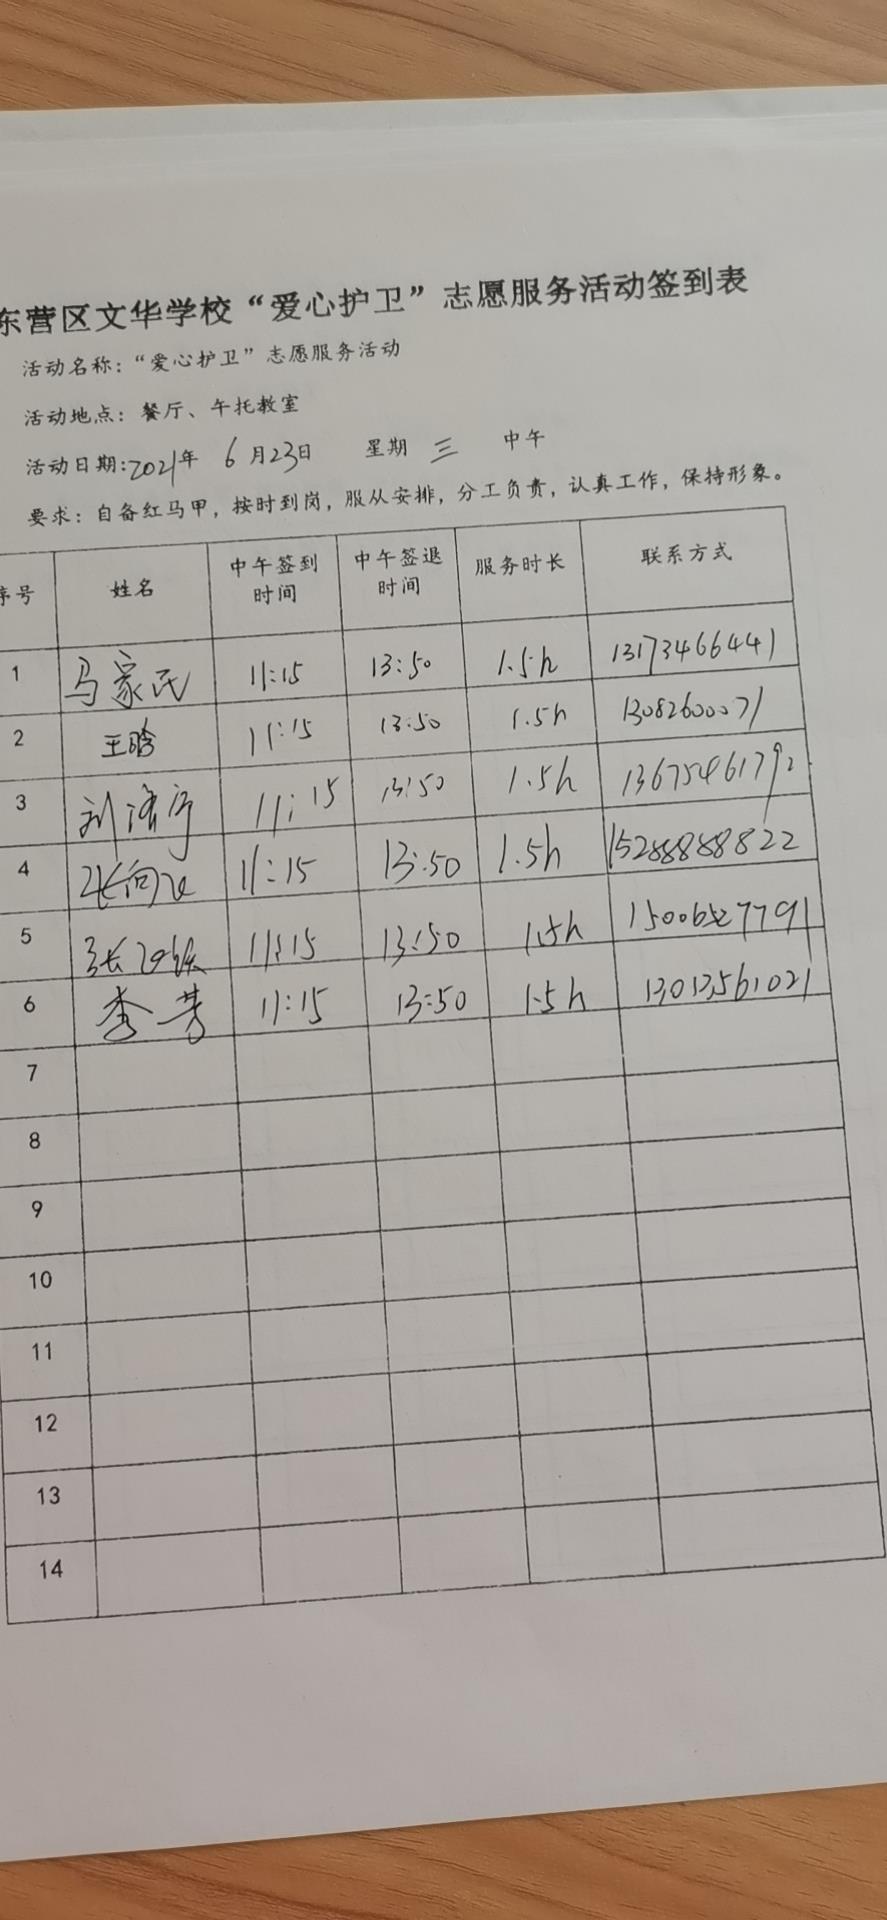 东营区文华学校“爱心护卫”志愿服务活动签到表
活动名称：“爱心护卫”志愿服务活动
活动地点：餐厅、午托教室
活动日期：2021年 6月23日 星期 三 中午
要求：自备红马甲，按时到岗，服从安排，分工负责，认真工作，保持形象。
序号 姓名 中午签到时间 中午签退时间 服务时长 联系方式
1 马家氏 11:15 13:50 1.5h 13173466441
2 王晗 11:15 13:50 1.5h 13082600071
3 刘 11:15 13:50 1.5h 13675461792
4 张向 11:15 13:50 1.5h 15288888822
5 张 11:15 13:50 1.5h
6 李芳 11:15 13:50 1.5h
7
8
9
10
11
12
13
14